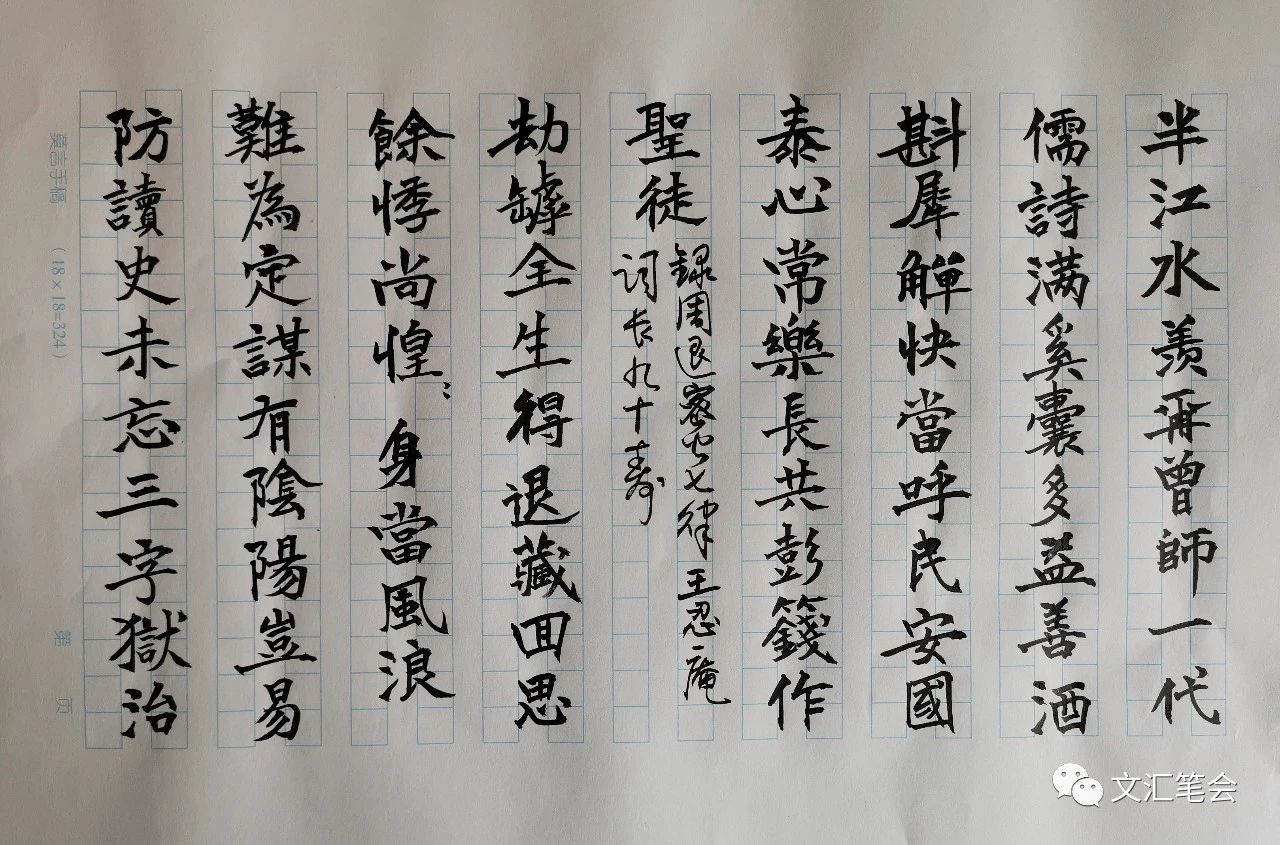 半江水羡再曾師一代
儒詩满奚囊多益善酒
斟犀觶快當呼民安國
泰心常樂長共彭籛作
聖徒
錄周退密公七律王忍庵
词长九十寿
劫罅全生得退藏囬思
餘悸尚惶〻身當風浪
難為定謀有陰陽豈易
防讀史未忘三字獄治
莫言手稿 (18×18=324) 第 页
文汇笔会